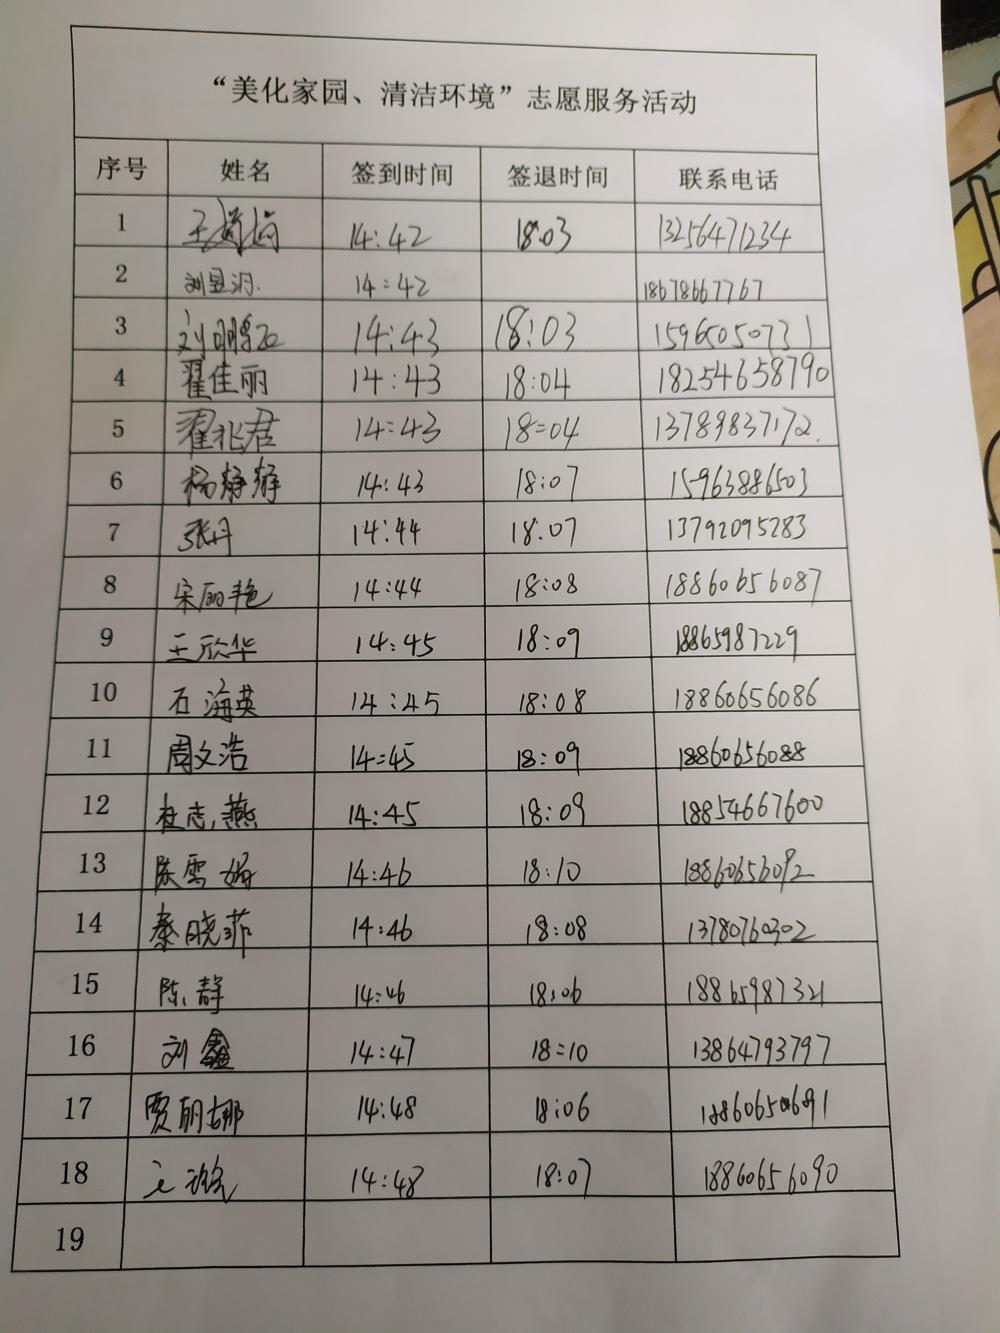 “美化家园、清洁环境”志愿服务活动
序号 姓名 签到时间 签退时间 联系电话
1 王 14:42 18:03 13256471234
2 刘昱汐. 14:42 18678667767
3 刘鹏 14:43 18:03 15965050731
4 翟佳丽 14:43 18:04 18254658790
5 翟兆君 14:43 18:04 13789837172.
6 杨静静 14:43 18:07 15963886503
7 张丹 14:44 18:07 13792095283
8 宋丽艳 14:44 18:08 18860656087
9 王欣华 14:45 18:09 18865987229
10 石海英 14:45 18:08 18860656086
11 周文浩 14:45 18:09 18860656088
12 杜志燕 14:45 18:09 18854667600
13 陈雪娟 14:46 18:10 18860656092
14 秦晓菲 14:46 18:08 13780760302
15 陈静 14:46 18:06 18865987321
16 刘鑫 14:47 18:10 13864793797
17 贾丽娜 14:48 18:06
18 14:48 18:07 18860656090
19